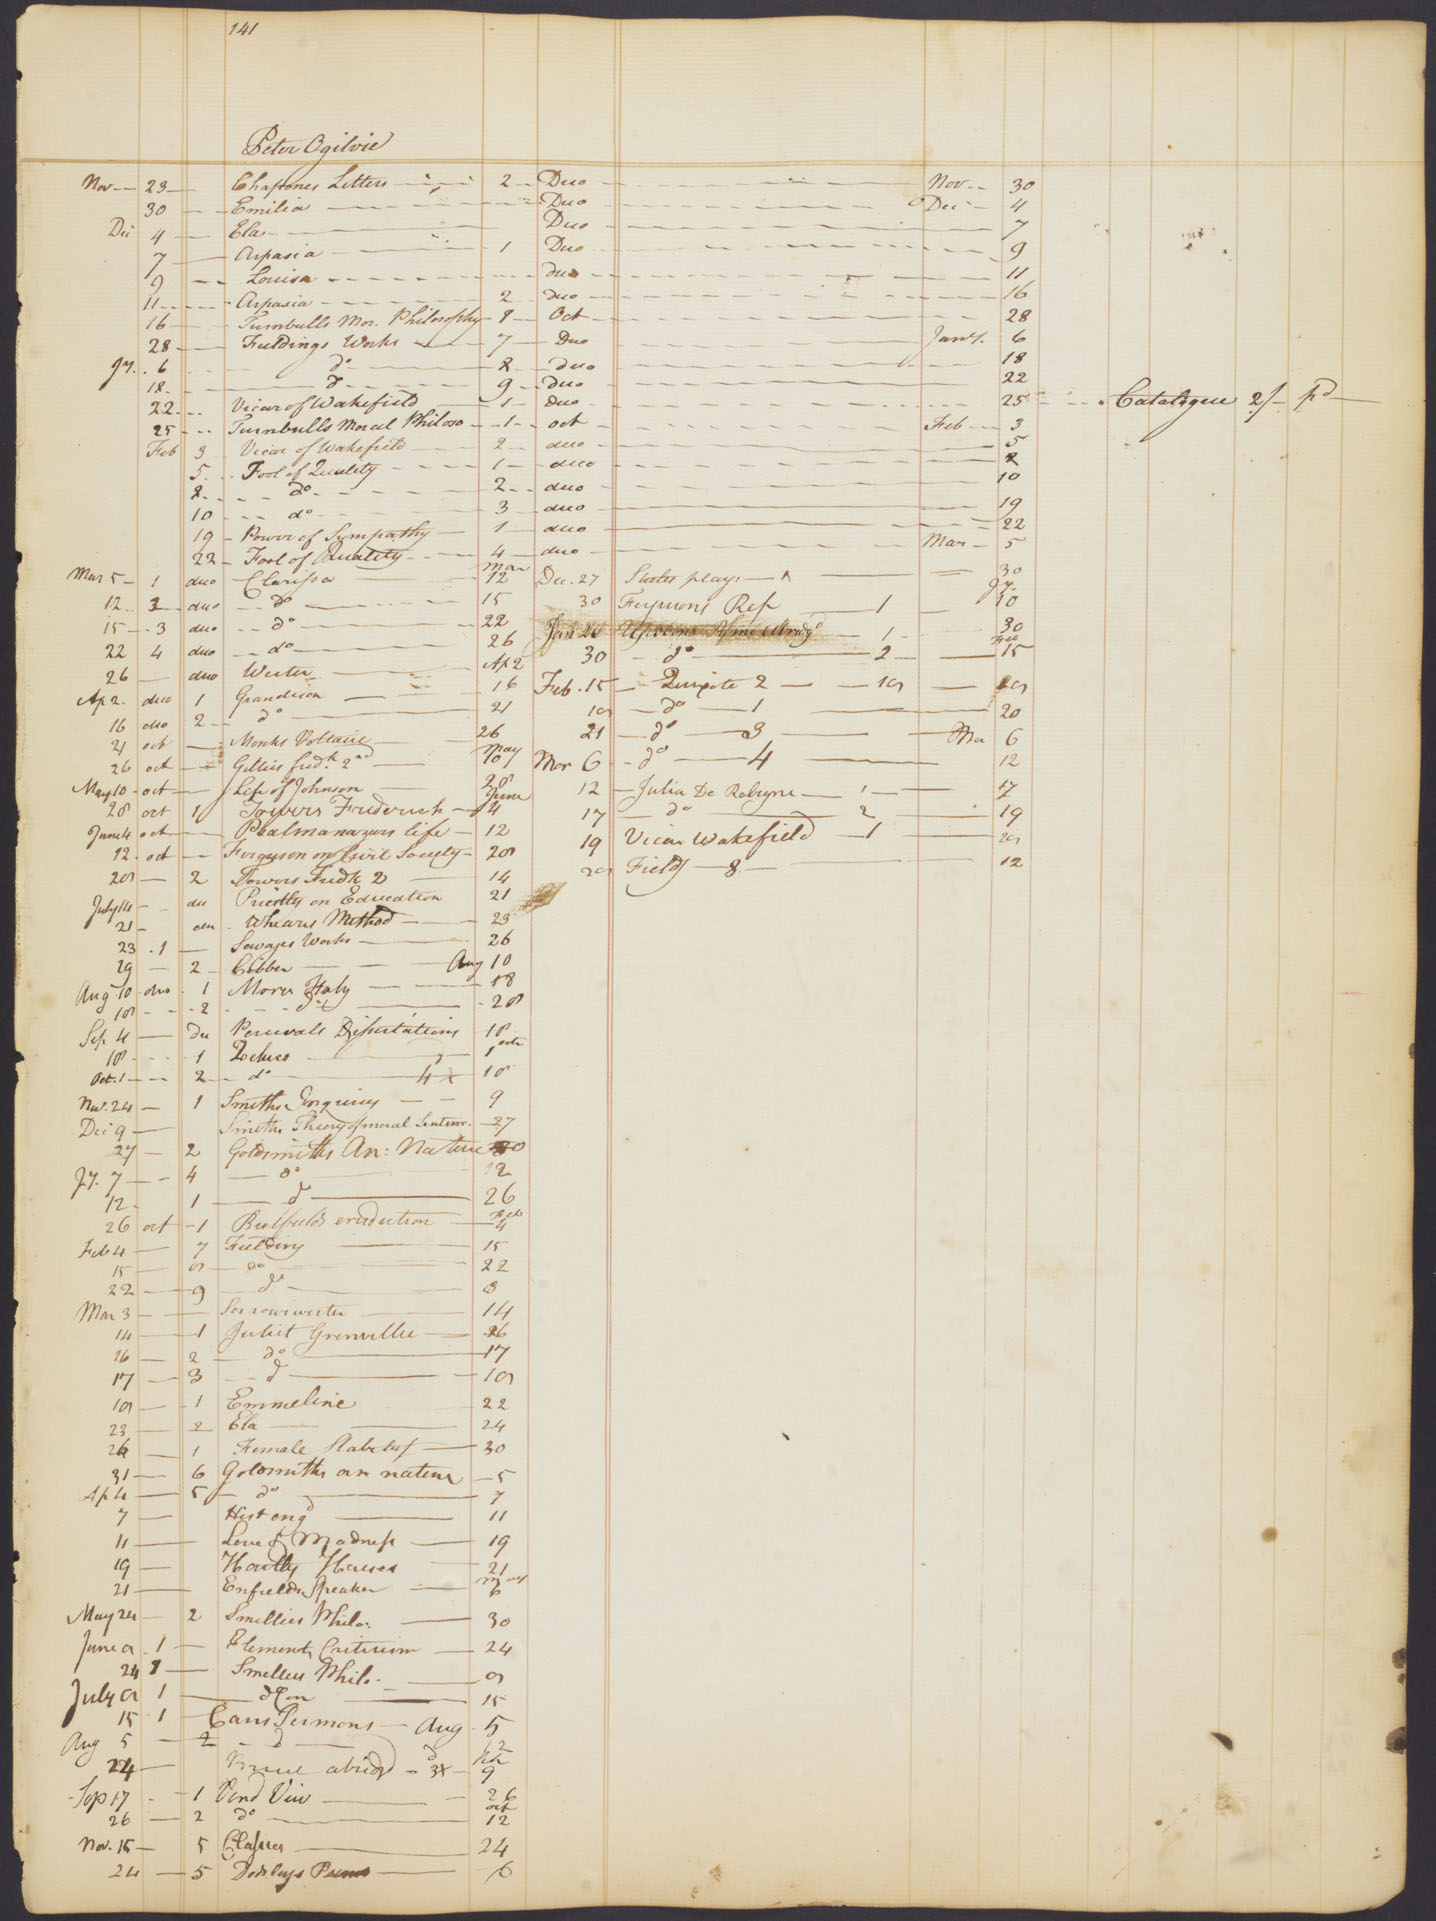 141
Peter Ogilvie
Nov 23 Chapones Letters 2 Duo Nov 30
30 Emilia Duo Dec 4
Dec 4 Ela Duo 7
7 Aspasia 1 Duo 9
9 Louisa duo 11
11 Aspasia 2 duo 16
16 Turnbulls Mor. Philosophy Oct 28
28 Fieldings Works 7 Duo Jany. 6
Jy. 6 do 8 duo 18
18 do 9 duo 22
22 Vicar of Wakefield 1 duo 25 Catalogue 2/ pd
25 Turnbulls Moral Philoso 1 oct Feb 3
Feb 3 Vicar of Wakefield 2 duo 5
5 Fool of Quality 1 duo 8
8 do 2 duo 10
10 do 3 duo 19
19 Power of Sympathy 1 duo 22
22 Fool of Quality 4 duo Mar 5
Mar 5 1 duo Clarissa Mar 12 Dec. 27 plays 30
12 duo do 15 30 Fergusons Rep 1 Jy. 10
15 3 duo do 22 Jan 1 30
22 4 duo do 26 30 do 2 Feb 15
26 duo Werter Ap 2 Feb. 15 Quixote 2 19
Ap 2 duo 1 Grandison 16 19 do 1 20
16 duo 2 do 21 21 do 3 Mar 6
21 oct Monks Voltaire 26 Mar 6 do 4 12
26 oct Gillies Fredk. 2nd May 10 12 Julia De Robigne 1 17
May 10 oct Life of Johnson 28 17 do 2 19
28 oct 1 Towers Frederick June 4 19 Vicar Wakefield 1 29
June 4 oct Psalmanazars life 12 29 Fieldg 8 12
12 oct Ferguson on Civil Society 28
28 2 Towers Fredk 2 14
July 14 du Priestly on Education 21
21 Whears Method 23
23 1 Savages Works 26
29 2 Cibber Aug 10
Aug 10 duo 1 Mores Italy 18
18 2 do 28
Sep 4 du Percivals Dissertations 18
18 1 Zeluco 1 octr
Oct. 1 2 do 4 x 18
Nov. 24 1 Smiths Enquiry 9
Dec 9 Smiths Theory of moral Sentim. 27
27 2 Goldsmiths An: Nature
Jy. 7 4 do 12
12 1 do 26
26 oct 1 Bielfields erudition Feb 4
Feb 4 7 Fielding 15
15 8 do 22
22 9 do 3
Mar 3 Sorrows werter 14
14 1 Juliet Grenville 16
16 2 do 17
17 3 do 19
19 1 Emmeline 22
23 2 Ela 24
26 1 Female 30
31 6 Goldsmiths an nature 5
Ap 4 5 do 7
7 Hist eng 11
11 Love & Madness 19
19 Hartly House 21
21 Enfields Speaker May 6
May 24 2 Smellies Philo. 30
June 9 1 Elements Criticism 24
24 1 Smellies Philo. 9
July 9 1 15
15 1 Carrs Sermons Aug 5
Aug 5 2 do 12
24 Bruce abridgd 3x 9
Sep 17 1 26
26 2 do oct 12
Nov. 15 5 24
24 5 Dodsleys Poems 6